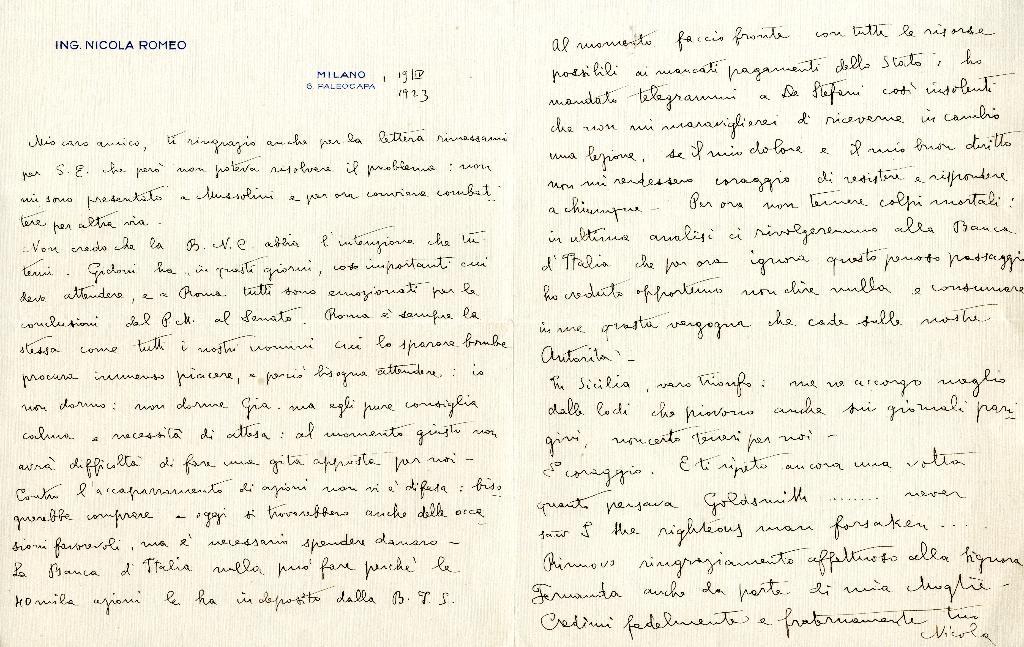 ING. NICOLA ROMEO
MILANO
6. PALEOCAPA, 19/IV
1923
Mio caro amico, ti ringrazio anche per la lettera rimessami
per S. E. che però non poteva risolvere il problema: non
mi sono presentato a Mussolini e per ora conviene combat-
tere per altra via.
Non credo che la B. N. C. abbia l'intenzione che tu
temi. Gidoni ha, in questi giorni, cose importanti cui
deve attendere, e a Roma tutti sono emozionati per le
conclusioni del P. M. al Senato. Roma è sempre la
stessa come tutti i nostri uomini cui lo sparare bombe
procura immenso piacere, e perciò bisogna attendere: io
non dormo: non dorme Gia. ma egli pure consiglia
calma e necessità di attesa: al momento giusto non
avrà difficoltà di fare una gita apposta per noi -
Contro l'accaparramento di azioni non vi è difesa: biso-
gnerebbe comprare e oggi si troverebbero anche delle occa-
sioni favorevoli, ma è necessario spendere danaro -
La Banca d'Italia nulla può fare perchè le
40 mila azioni le ha in deposito dalla B. I. S.
Al momento faccio fronte con tutte le risorse
possibili ai mancati pagamenti dello Stato: ho
mandato telegrammi a De Stefani così insolenti
che non mi maraviglierei di riceverne in cambio
una lezione, se il mio dolore e il mio buon diritto
non mi rendessero coraggio di resistere e rispondere
a chiunque - Per ora non temere colpi mortali:
in ultima analisi ci rivolgeremmo alla Banca
d'Italia che per ora ignora questo penoso passaggio
ho creduto opportuno non dire nulla e consumare
in me questa vergogna che cade sulle nostre
Autorità -
In Sicilia, vero trionfo: me ne accorgo meglio
dalle lodi che piovono anche sui giornali pari-
gini, non certo teneri per noi -
E coraggio. E ti ripeto ancora una volta
quanto pensava Goldsmith ........ never
saw I the righteous man forsaken .....
Rinnovo ringraziamento affettuoso alla Signora
Fernanda anche da parte di mia Moglie -
Credimi fedelmente e fraternamente tuo
Nicola